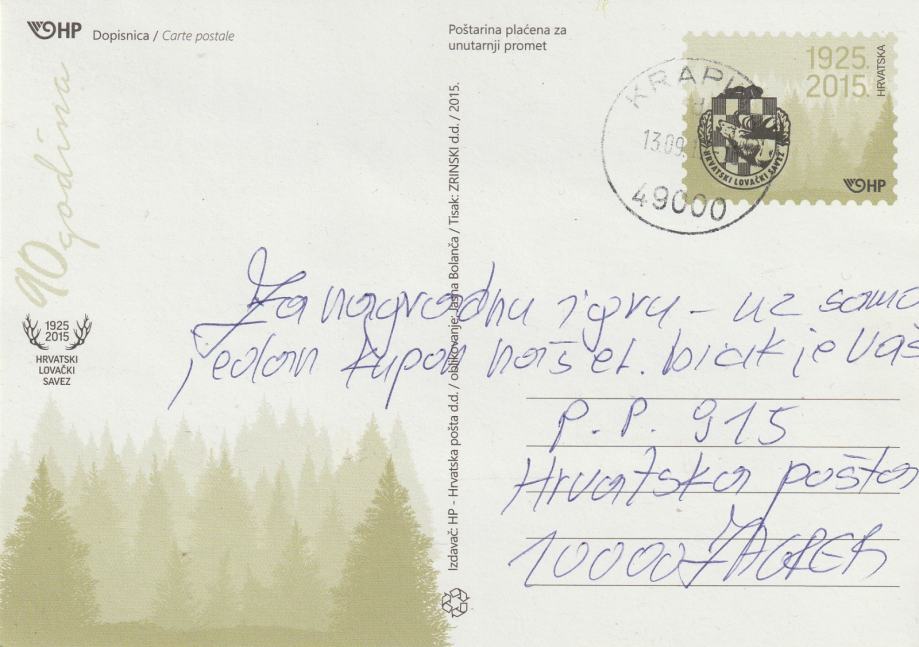 HP
Dopisnica / Carte postale
Poštarina plaćena za
unutarnji promet
1925.
2015.
HRVATSKA
HRVATSKI LOVAČKI SAVEZ
HP
13.09.
49000
90 godina
1925
2015
HRVATSKI
LOVAČKI
SAVEZ
Izdavač: HP - Hrvatska pošta d.d. / oblikovanje: Jasna Bolanča / Tisak: ZRINSKI d.d. / 2015.
Za nagradnu igru - uz samo
jedan kupon naš el. bicikl je Vaš
P.P. 915
Hrvatska pošta
10000 ZAGREB